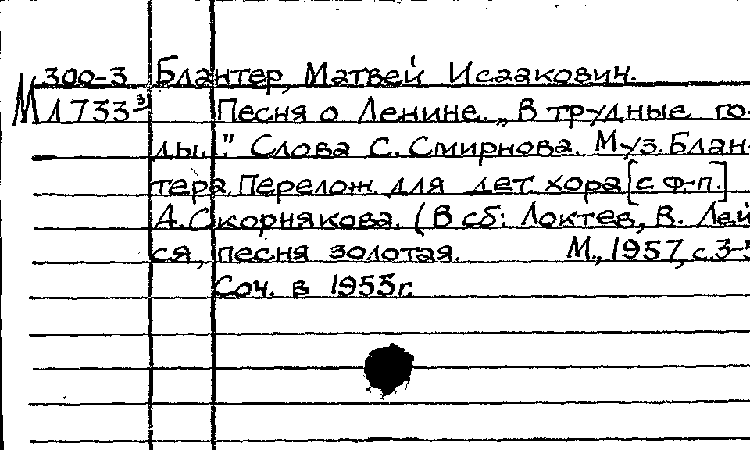 300-3 Блантер, Матвей Исаакович.
М1733³ Песня о Ленине. „В трудные го-
ды..." Слова С. Смирнова. Муз. Блан-
тера. Перелож. для дет. хора [с ф-п.]
А. Скорнякова. (В сб: Локтев, В. Лей-
ся, песня золотая. М., 1957, с. 3-5
Соч. в 1955г.